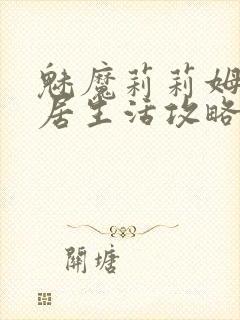 魅魔莉莉姆
居生活攻略
開塘